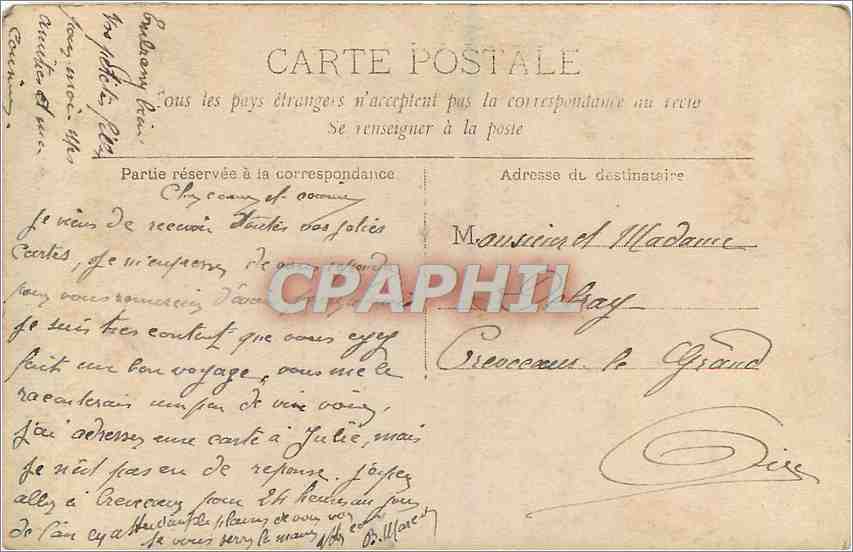 CARTE POSTALE
Tous les pays étrangers n'acceptent pas la correspondance au recto
Se renseigner à la poste
Partie réservée à la correspondance
Adresse du destinataire
Monsieur et Madame
Crevecoeur le Grand
Oise
Cher cousin et cousine
Je viens de recevoir toutes vos jolies
cartes, Je m'empresse de vous
pour vous remercier
Je suis très content que vous eyez
fait un bon voyage, vous me le
raconterais un peu de vive voix,
j'ai adresser une carte à Julie, mais
Je n'ait pas eu de reponse. J'espere
aller à Crevecoeur pour 24 heures au jour
de l'an
le plaisir de vous voir
Je vous serre la main
B. Marcel
Embrassez bien
vos petites filles
pour moi mes
amitiés et ma
cousine.
CPAPHIL